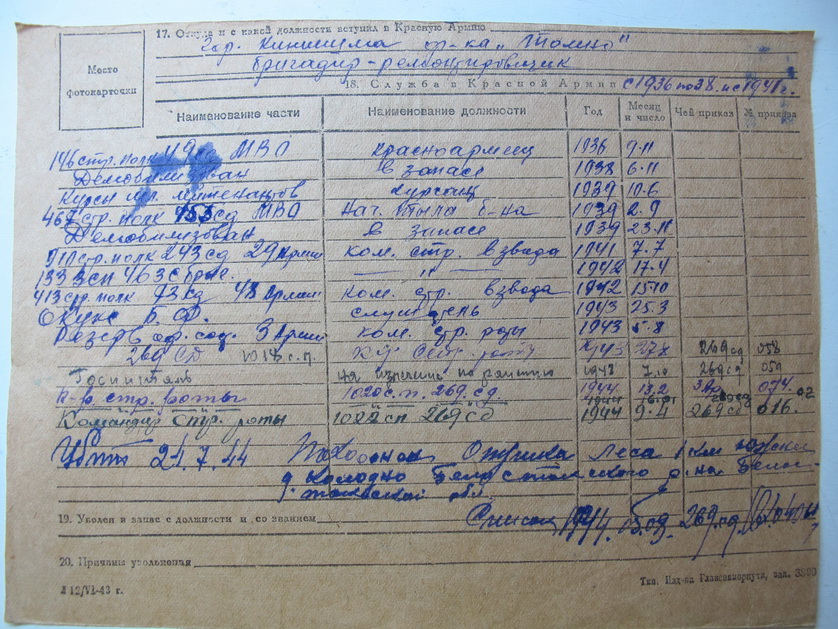 17. Откуда и с какой должности вступил в Красную Армию
гор. Кинешма ф-ка
бригадир-ремонтировщик
Место
фотокарточки
18. Служба в Красной Армии с 1936 по 38. и с 1941 г.
Наименование части Наименование должности Год Месяц и число Чей приказ № приказа
146 стр. полк 49 МВО красноармеец 1936 9.11
Демобилизован в запасе 1938 6.11
Курсы лейтенантов курсант 1939 10.6
467 стр. полк сд МВО Нач. тыла б-на 1939 2.9
Демобилизован в запасе 1939 23.11
стр. полк 243 сд 29 Армии ком. стр. взвода 1941 7.7
133 зсп 46 -"- 1942 17.4
413 стр. полк 73 сд 48 Армии ком. стр. взвода 1942 15.10
Окукс Б. Ф. слушатель 1943 25.3
Резерв 3 Армии ком. стр. роты 1943
269 СД 1018 с.п. роты 1943 269 сд 058
Госпиталь на излечение по ранению 1943 269 сд 054
К-р стр. роты 1020 с.п. 269 сд. 1944 13.2 074
Командир стр. роты 1022 сп 269 сд 1944 9.4 269 сд 016.
Убит 21.7.44 Похоронен Опушка леса 1 км южнее
д. Колодно Белостокского р-на Бело-
стокской обл.
19. Уволен в запас с должности и со званием
Список 1944. 269 сд
20. Причина увольнения
Л 12/VI-43 г.